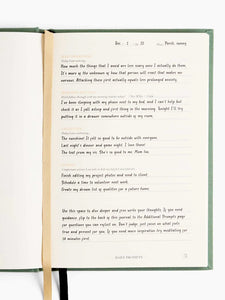 Dec 1 20 Fresh, sunny
How much the things that I avoid are less scary once I actually do them.
It's more of the unknown of how that person will react that makes me
nervous. Attacking these first actually equals less prolonged anxiety.
I've been sleeping with my phone next to my bed, and I can't help but
check it as I fall asleep and first thing in the morning. Tonight I'll try
putting it in a drawer somewhere out of my room.
The sunshine! It felt so good to be outside with everyone.
Last night's dinner and game night. I love these!
The text from my sis. She's so good to me. Mom too.
Finish editing my project photos and send to client.
Schedule a time to volunteer next week.
Create my dream list of qualities for a future home.
Use this space to dive deeper and free write your thoughts. If you need
guidance, flip to the back of this journal to the Additional Prompts page
for questions you can reflect on. Don't judge, just focus on what feels
true and present for you. If you need more inspiration try meditating for
10 minutes first.
DAILY PROMPTS